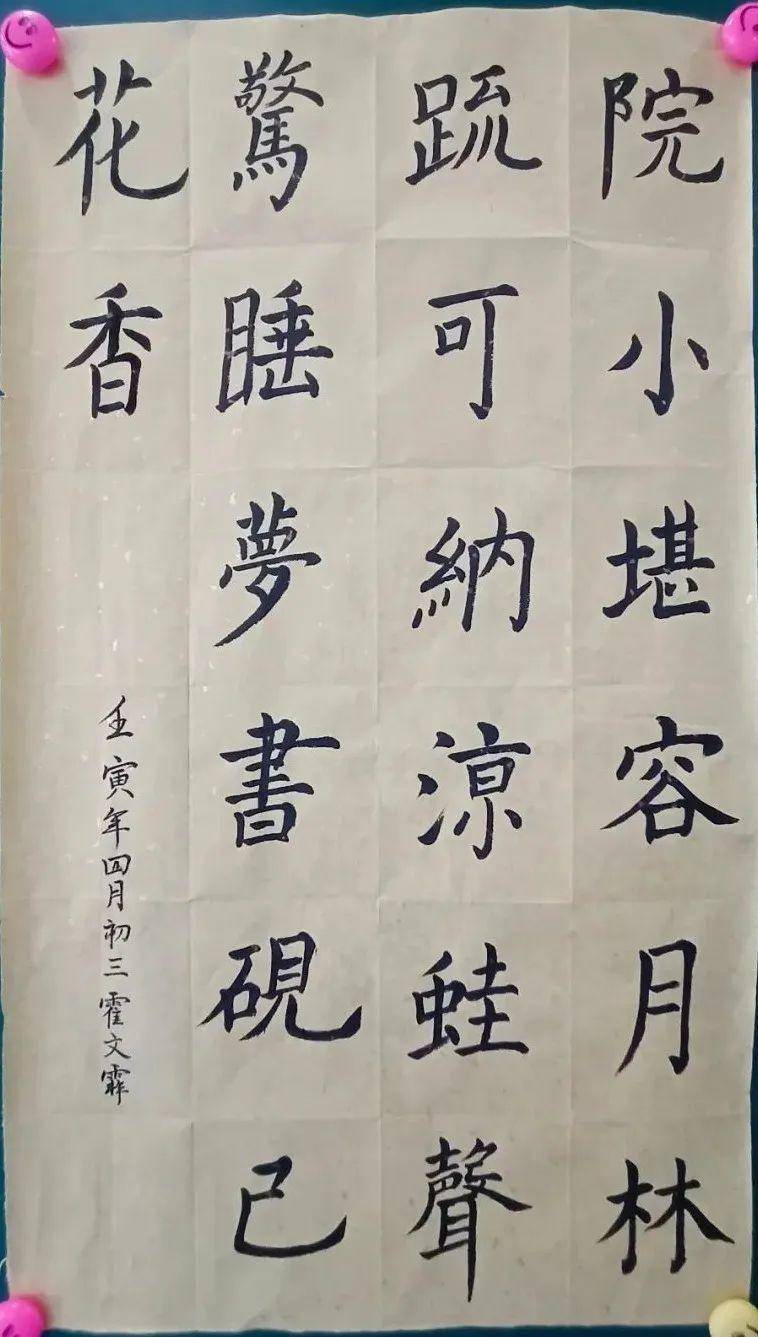 院小堪容月林
疏可納涼蛙聲
驚睡夢書硯已
花香
壬寅年四月初三霍文霏